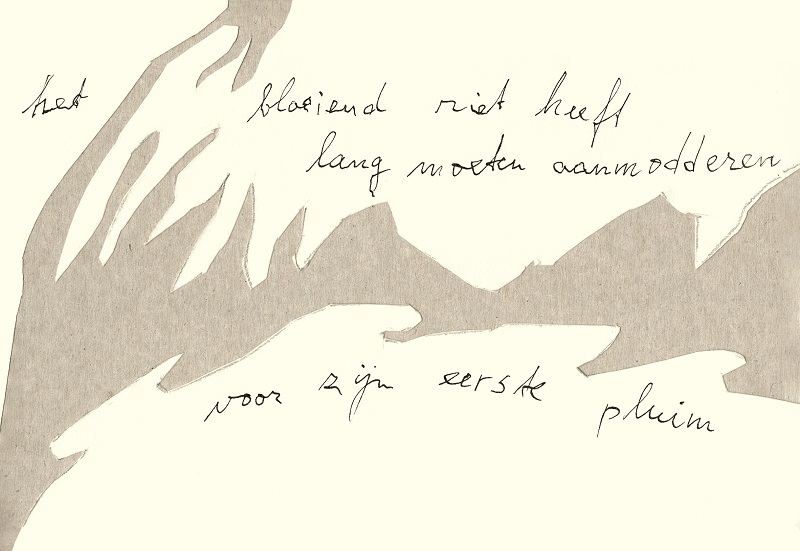 het bloeiend riet heeft
lang moeten aanmodderen
voor zijn eerste pluim